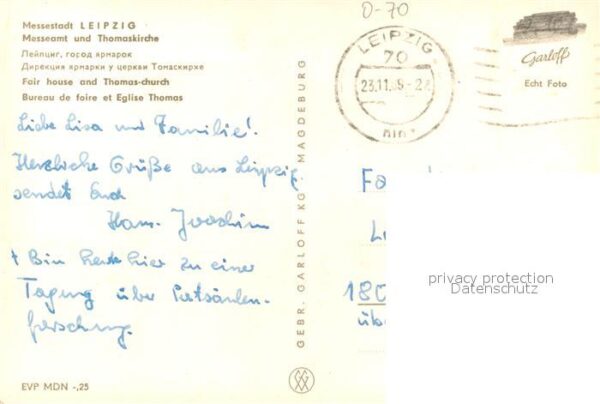 Messestadt LEIPZIG
Messeamt und Thomaskirche
Лейпциг, город ярмарок
Дирекция ярмарки у церкви Томаскирхе
Fair house and Thomas-church
Bureau de foire et Eglise Thomas
Liebe Lisa und Familie!
Herzliche Grüße aus Leipzig
sendet Euch
Hans-Joachim
Bin heute hier zu einer
Tagung über Postsäulen-
forschung.
EVP MDN -,25
GEBR. GARLOFF KG MAGDEBURG
0-70
LEIPZIG
70
23.11.
Garloff
Echt Foto
Fa
180
üb
privacy protection
Datenschutz